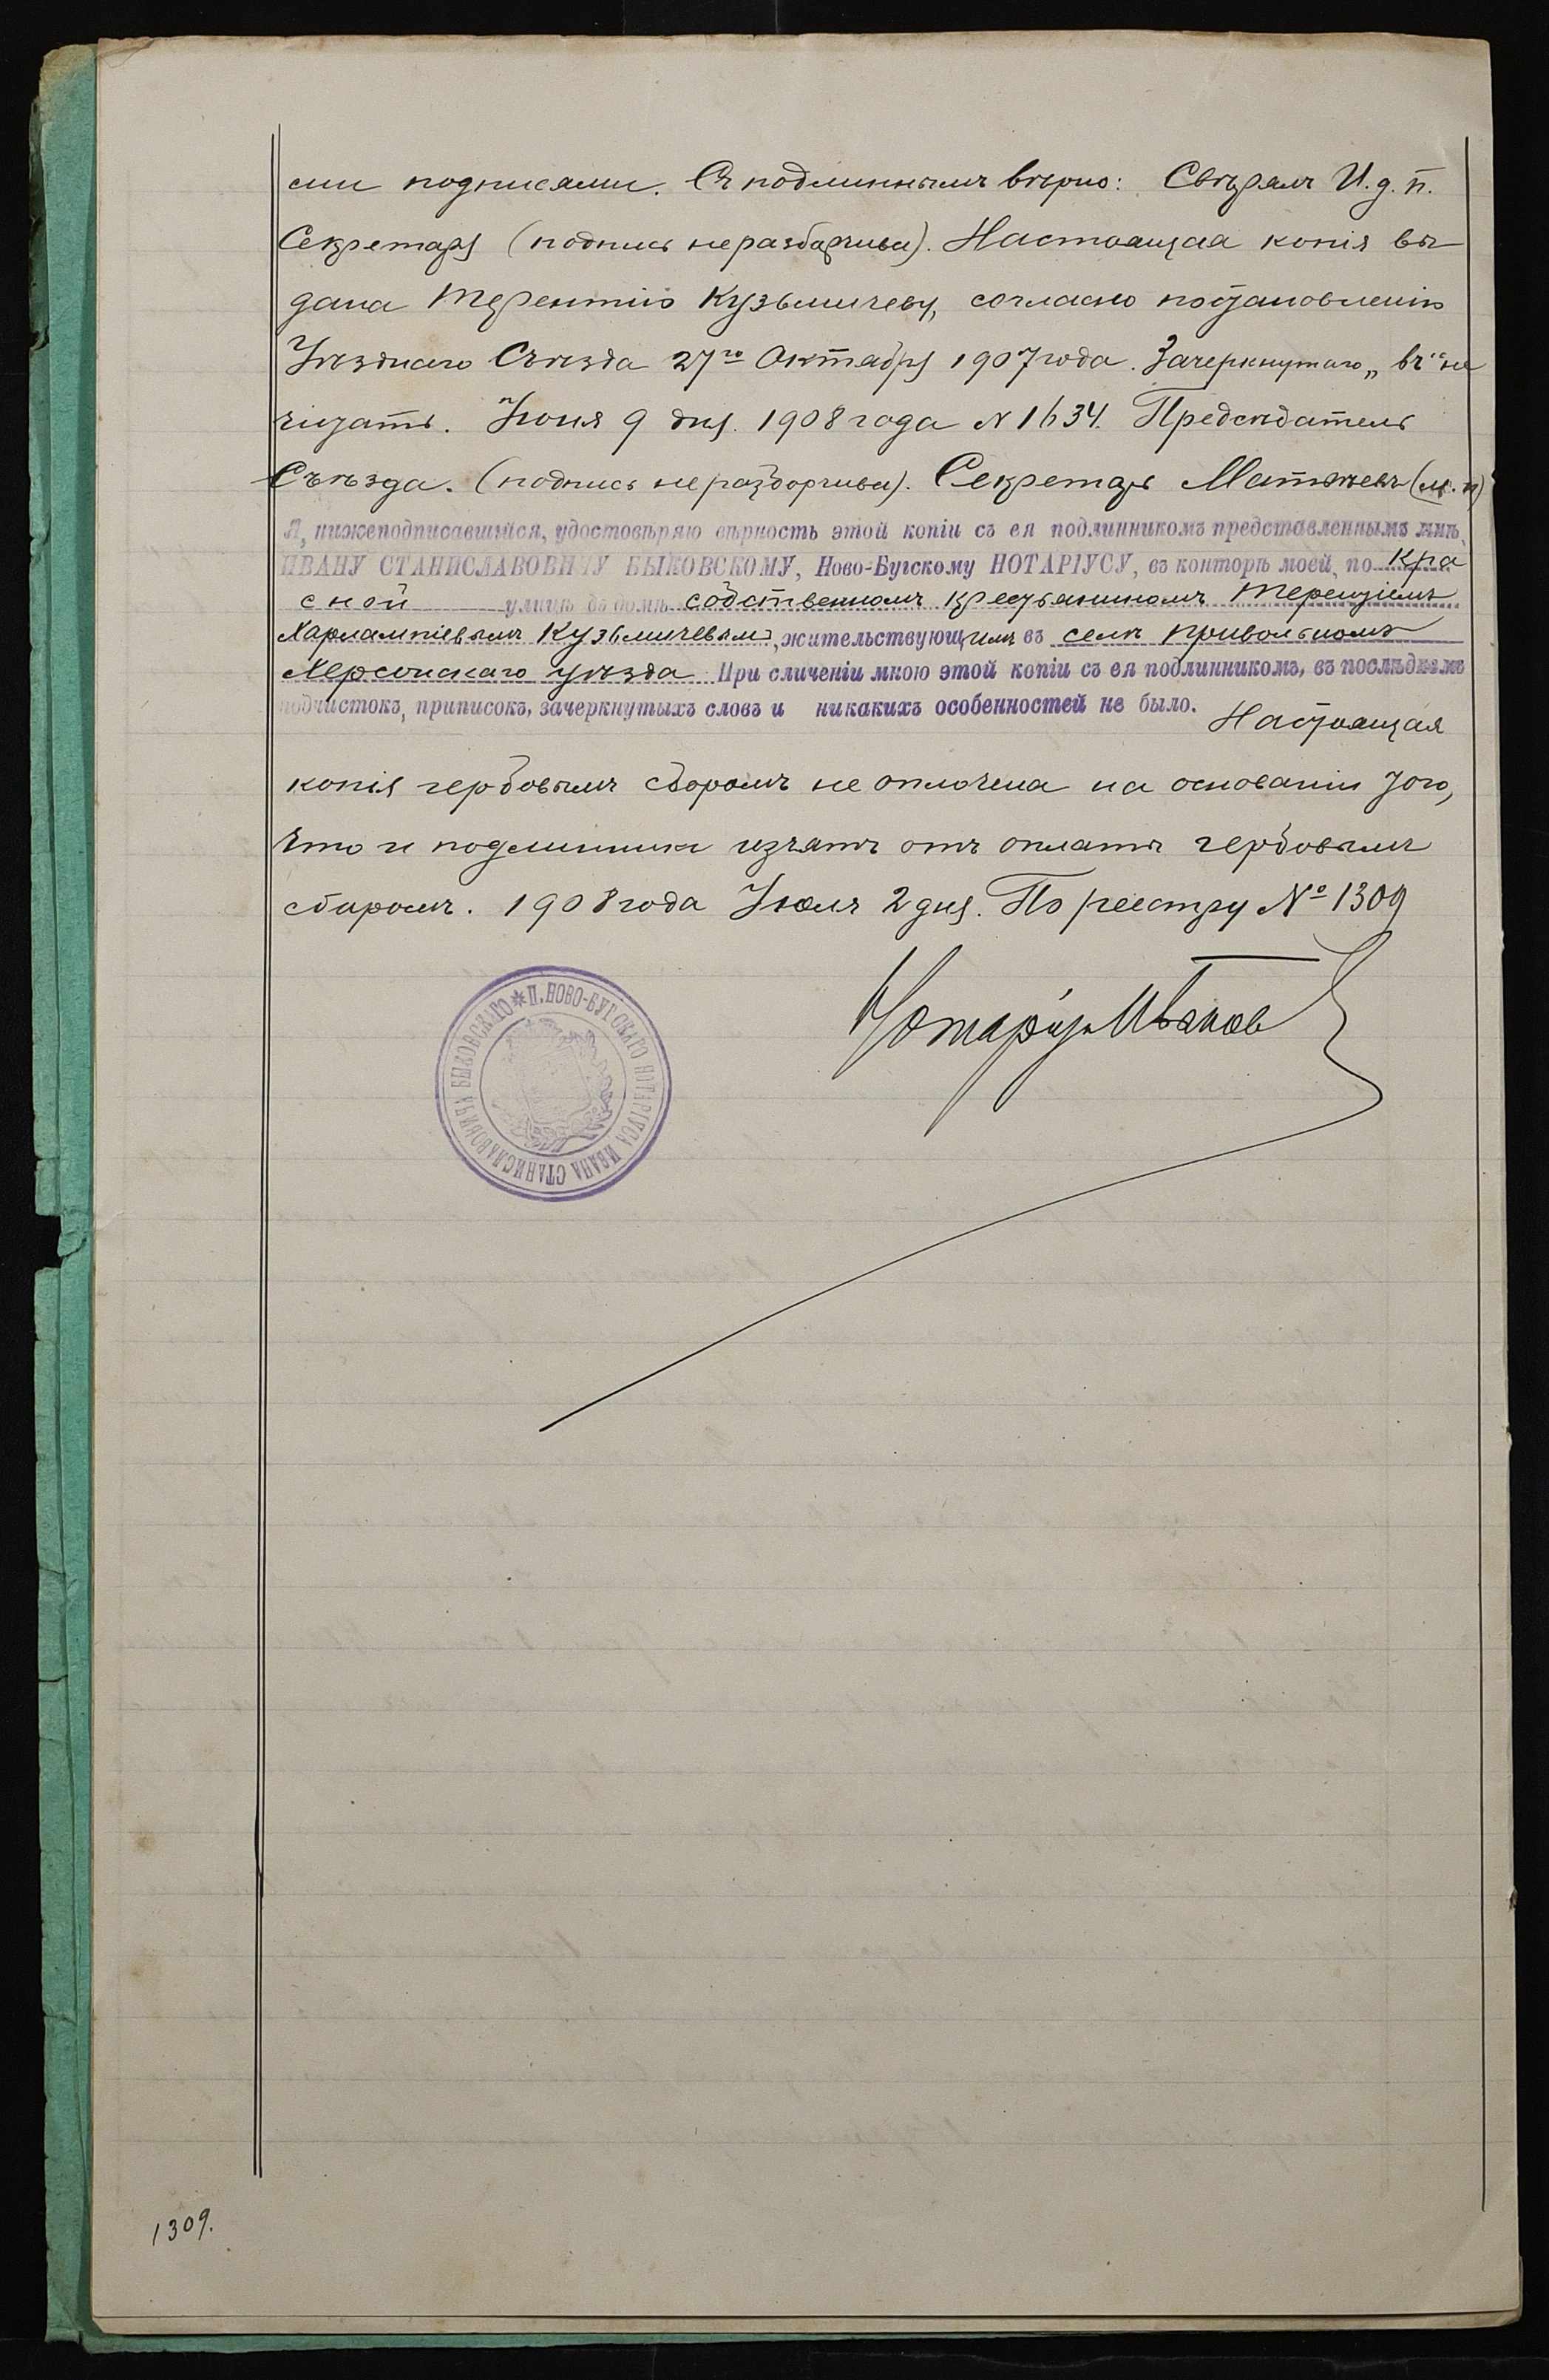 сии подписями. Съ подлиннымъ вѣрно: Свѣрялъ И. д. п.
Секретаря (подпись неразборчива). Настоящая копія вы-
дана Терентію Кузьмичеву, согласно постановленію
Уѣзднаго Съѣзда 27го Октября 1907 года. Зачеркнутаго „въ“ не
читать. Іюня 9 дня. 1908 года № 1634. Предсѣдатель
Съѣзда. (подпись неразборчива). Секретарь (м. п)
Я, нижеподписавшійся, удостовѣряю вѣрность этой копіи съ ея подлинникомъ представленнымъ мнѣ,
ИВАНУ СТАНИСЛАВОВИЧУ БЫКОВСКОМУ, Ново-Бугскому НОТАРІУСУ, въ конторѣ моей, по Кра
сной улицѣ въ домѣ собственномъ крестьяниномъ Терентіемъ
Харлампіевымъ Кузьмичевымъ, жительствующимъ въ селѣ Привольномъ
Херсонскаго уѣзда При сличеніи мною этой копіи съ ея подлинникомъ, въ послѣднемъ
подчистокъ, приписокъ, зачеркнутыхъ словъ и никакихъ особенностей не было. Настоящая
копія гербовымъ сборомъ не оплочена на основаніи того,
что и подлинникъ изъятъ отъ оплаты гербовымъ
сборомъ. 1908 года Іюля 2 дня. По реестру № 1309
Нотаріусъ
П. НОВО-БУГСКАГО НОТАРІУСА ИВАНА СТАНИСЛАВОВИЧА БЫКОВСКАГО
1309.